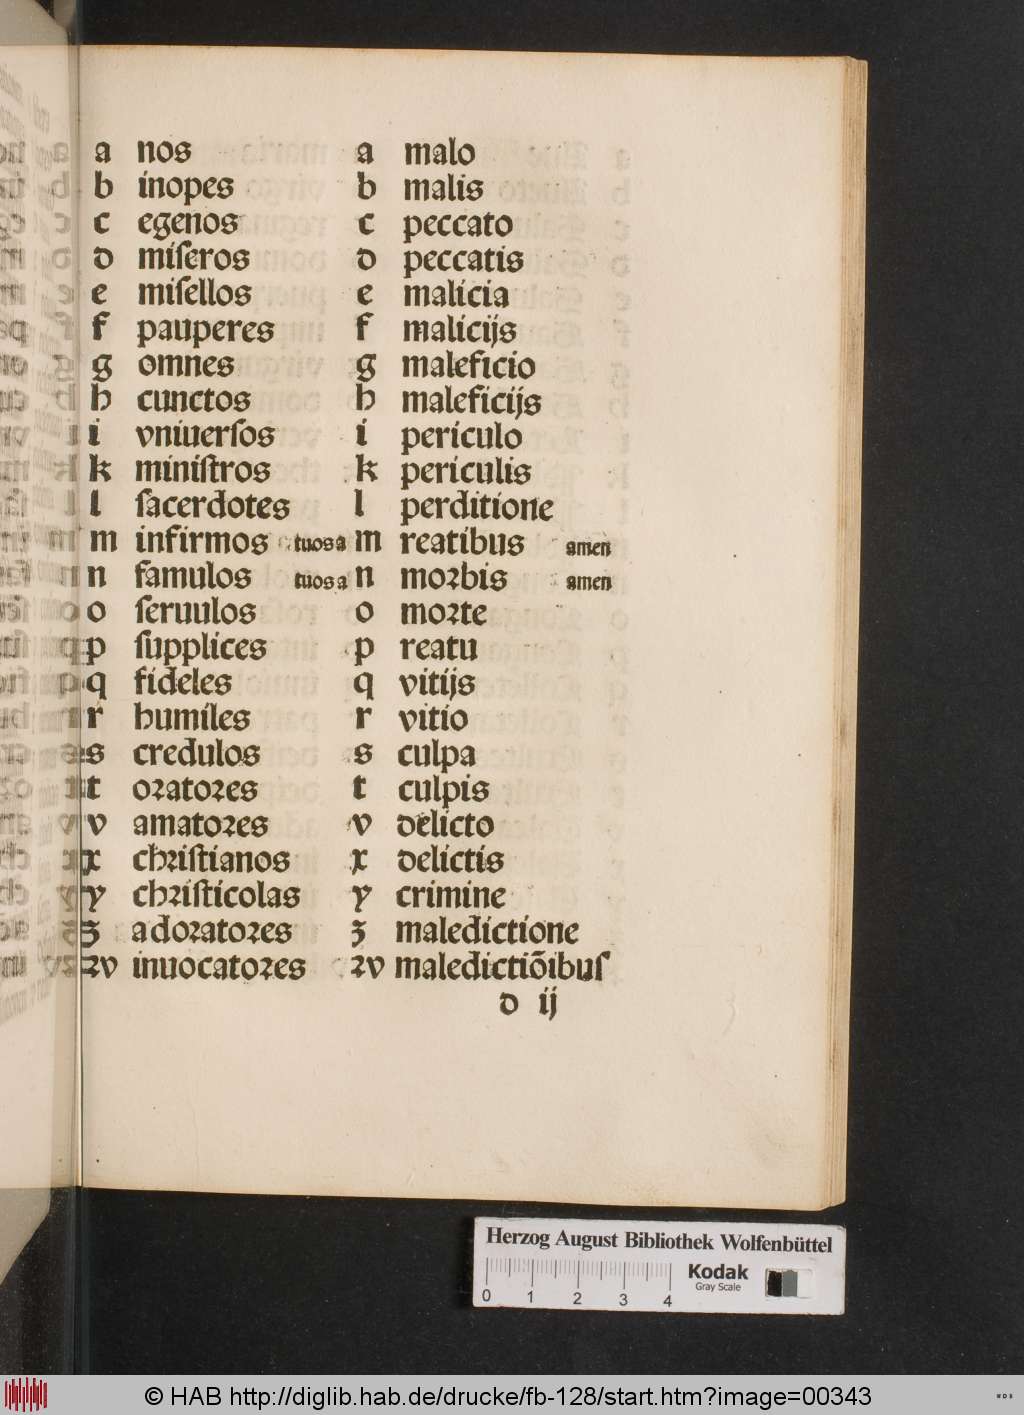 a nos a malo
b inopes b malis
c egenos c peccato
d miſeros d peccatis
e miſellos e malicia
f pauperes f malicijs
g omnes g maleficio
h cunctos h maleficijs
i vniuerſos i periculo
k miniſtros k periculis
l ſacerdotes l perditione
m infirmos tuos a m reatibus amen
n famulos tuos a n moꝛbis amen
o ſeruulos o moꝛte
p ſupplices p reatu
q fideles q vitijs
r humiles r vitio
s credulos s culpa
t oꝛatoꝛes t culpis
v amatoꝛes v delicto
x chꝛiſtianos x delictis
y chꝛiſticolas y crimine
ʒ adoꝛatoꝛes ʒ maledictione
ꝛv inuocatoꝛes ꝛv maledictiõibuſ
d ij
Herzog August Bibliothek Wolfenbüttel
Kodak
Gray Scale
0 1 2 3 4
© HAB http://diglib.hab.de/drucke/fb-128/start.htm?image=00343